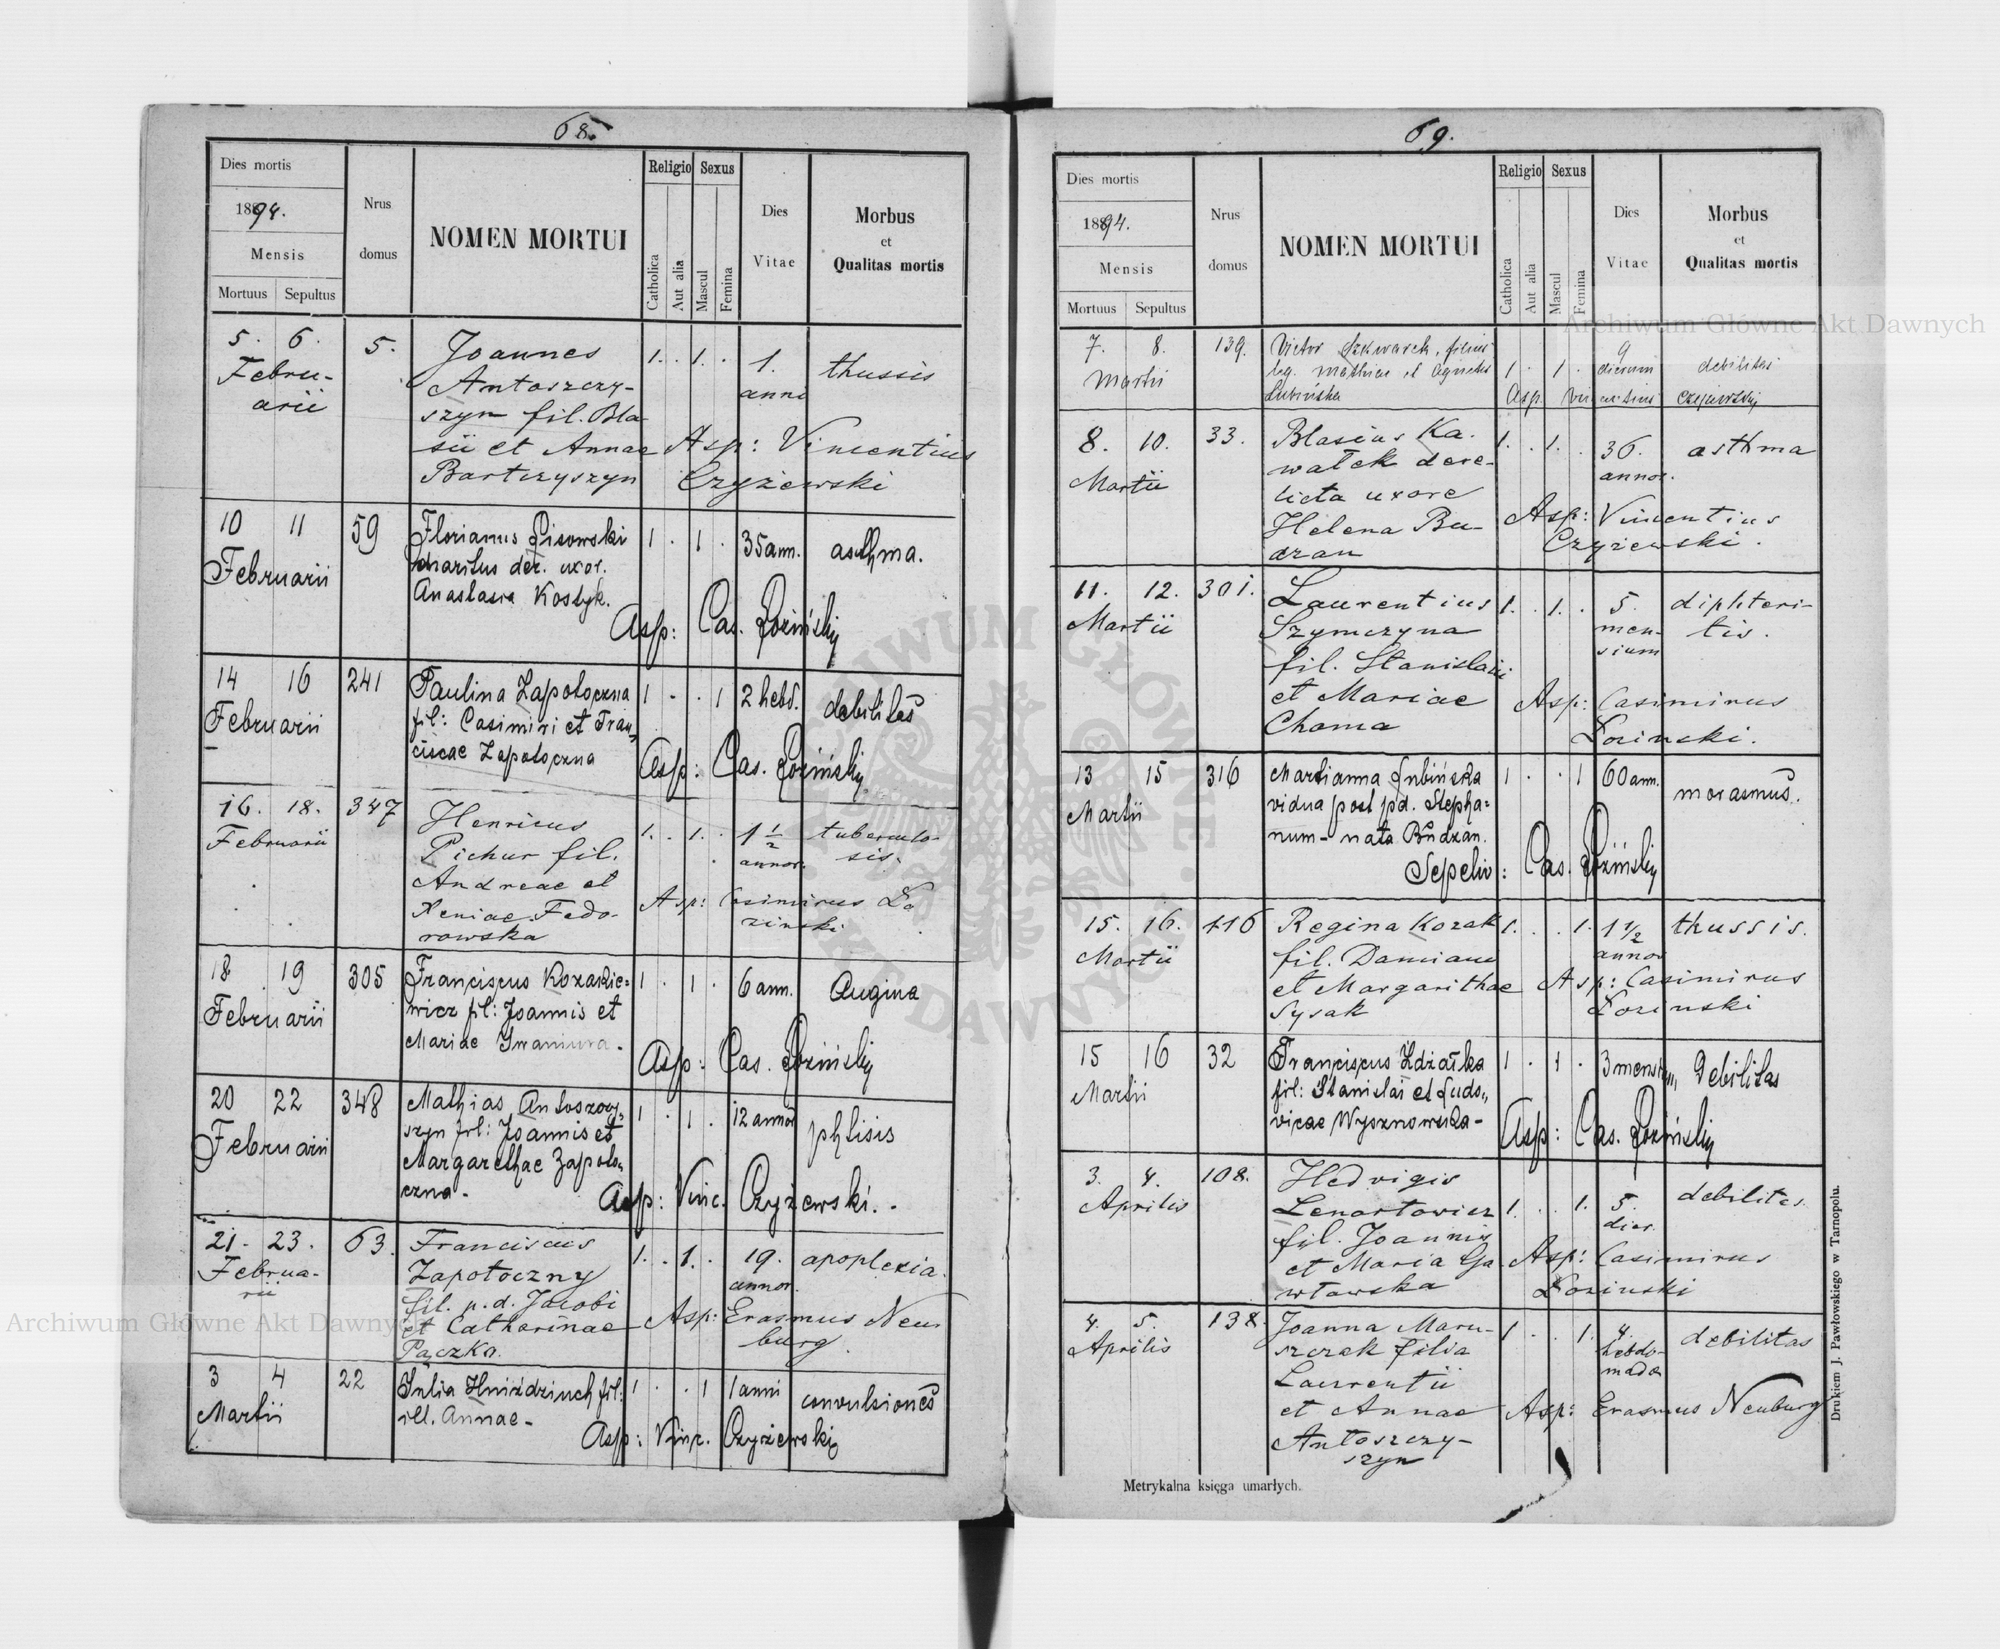 68.
Dies mortis
1894.
Mensis
Mortuus Sepultus
Nrus domus
NOMEN MORTUI
Religio
Catholica
Aut alia
Sexus
Mascul
Femina
Dies Vitae
Morbus
et
Qualitas mortis
5. 6. 5. Joannes 1. . 1. . 1. thussis
Febru- Antoszczy- anni
arii szyn fil. Bla-
sii et Annae Asp: Vincentius
Bartczyszyn Czyżewski
10 11 59 Florianus Lisowski 1 . 1 . 35 ann. asthma.
Februarii maritus der. uxor.
Anastasia Kostyk.
Asp: Cas. Łoziński
14 16 241 Paulina Zapotoczna 1 . . 1 2 hebd. debilitas
Februarii fil: Casimiri et Fran-
ciscae Zapotoczna Asp: Cas. Łoziński
16. 18. 347 Henricus 1. . 1. . 1 1/2 tuberculo-
Februarii Pichur fil. annor. sis.
Andreae et
Xeniae Fedo- Asp: Casimirus Lo
rowska zinski
18 19 305 Franciscus Kozakie- 1 . 1 . 6 ann. Augina
Februarii wicz fil: Joannis et
Mariae Iwaniura. Asp: Cas. Łoziński
20 22 348 Mathias Antoszczy- 1 . 1 . 12 annor phtisis
Februarii szyn fil: Joannis et
Margarethae Zapoto-
czna. Asp: Vinc. Czyżewski.
21. 23. 63. Franciscus 1. . 1. . 19. apoplexia.
Februa- Zapotoczny annor.
rii fil. p.d. Jacobi
et Catharinae Asp: Erasmus Neu
Pączka. burg.
3 4 22 Julia Hniździuch fil: 1 . . 1 1 anni convulsiones
Martii ill. Annae.
Asp: Vinc. Czyżewski
69.
Dies mortis
1894.
Mensis
Mortuus Sepultus
Nrus domus
NOMEN MORTUI
Religio
Catholica
Aut alia
Sexus
Mascul
Femina
Dies Vitae
Morbus
et
Qualitas mortis
7. 8. 139. Victor filius 9
Martii leg. Mathiae et Agnetis 1 . 1 . dierum debilitas
Lubińska Asp. Vincentius Czyżewski
8. 10. 33. Blasius Ka- 1. . 1. . 36. asthma
Martii wałek dere- annor.
licta uxore
Helena Bu- Asp: Vincentius
dzan Czyżewski.
11. 12. 301. Laurentius 1. . 1. . 5. diphteri-
Martii Szymczyna men- tis.
fil. Stanislai sium
et Mariae Asp: Casimirus
Choma Lozinski.
13 15 316 Marianna Łubińska 1 . . 1 60 ann. marasmus.
Martii vidua post pd. Stepha-
num - nata Budzan.
Sepeliv: Cas. Łoziński
15. 16. 116 Regina Kozak 1. . . 1. 1 1/2 thussis.
Martii fil. Damiani annor
et Margarithae Asp: Casimirus
Sysak Lozinski
15 16 32 Franciscus Zdżałka 1 . 1 . 3 mensium Debilitas
Martii fil: Stanislai et Ludo-
vicae Wysznowska- Asp: Cas. Łoziński
3. 4. 108. Hedvigis
Aprilis Lenartowicz 1. . . 1. 5. debilitas
fil. Joannis dier.
et Maria Ga Asp: Casimirus
włowska Lozinski
4. 5. 138. Joanna Maru- 1 . . 1. 4. debilitas
Aprilis szczak filia hebdo-
Laurentii madar
et Annae Asp: Erasmus Neuburg
Antoszczy-
szyn
Metrykalna księga umarłych.
Drukiem J. Pawłowskiego w Tarnopolu.
Archiwum Główne Akt Dawnych
Archiwum Główne Akt Dawnych
ARCHIWUM GŁÓWNE AKT DAWNYCH